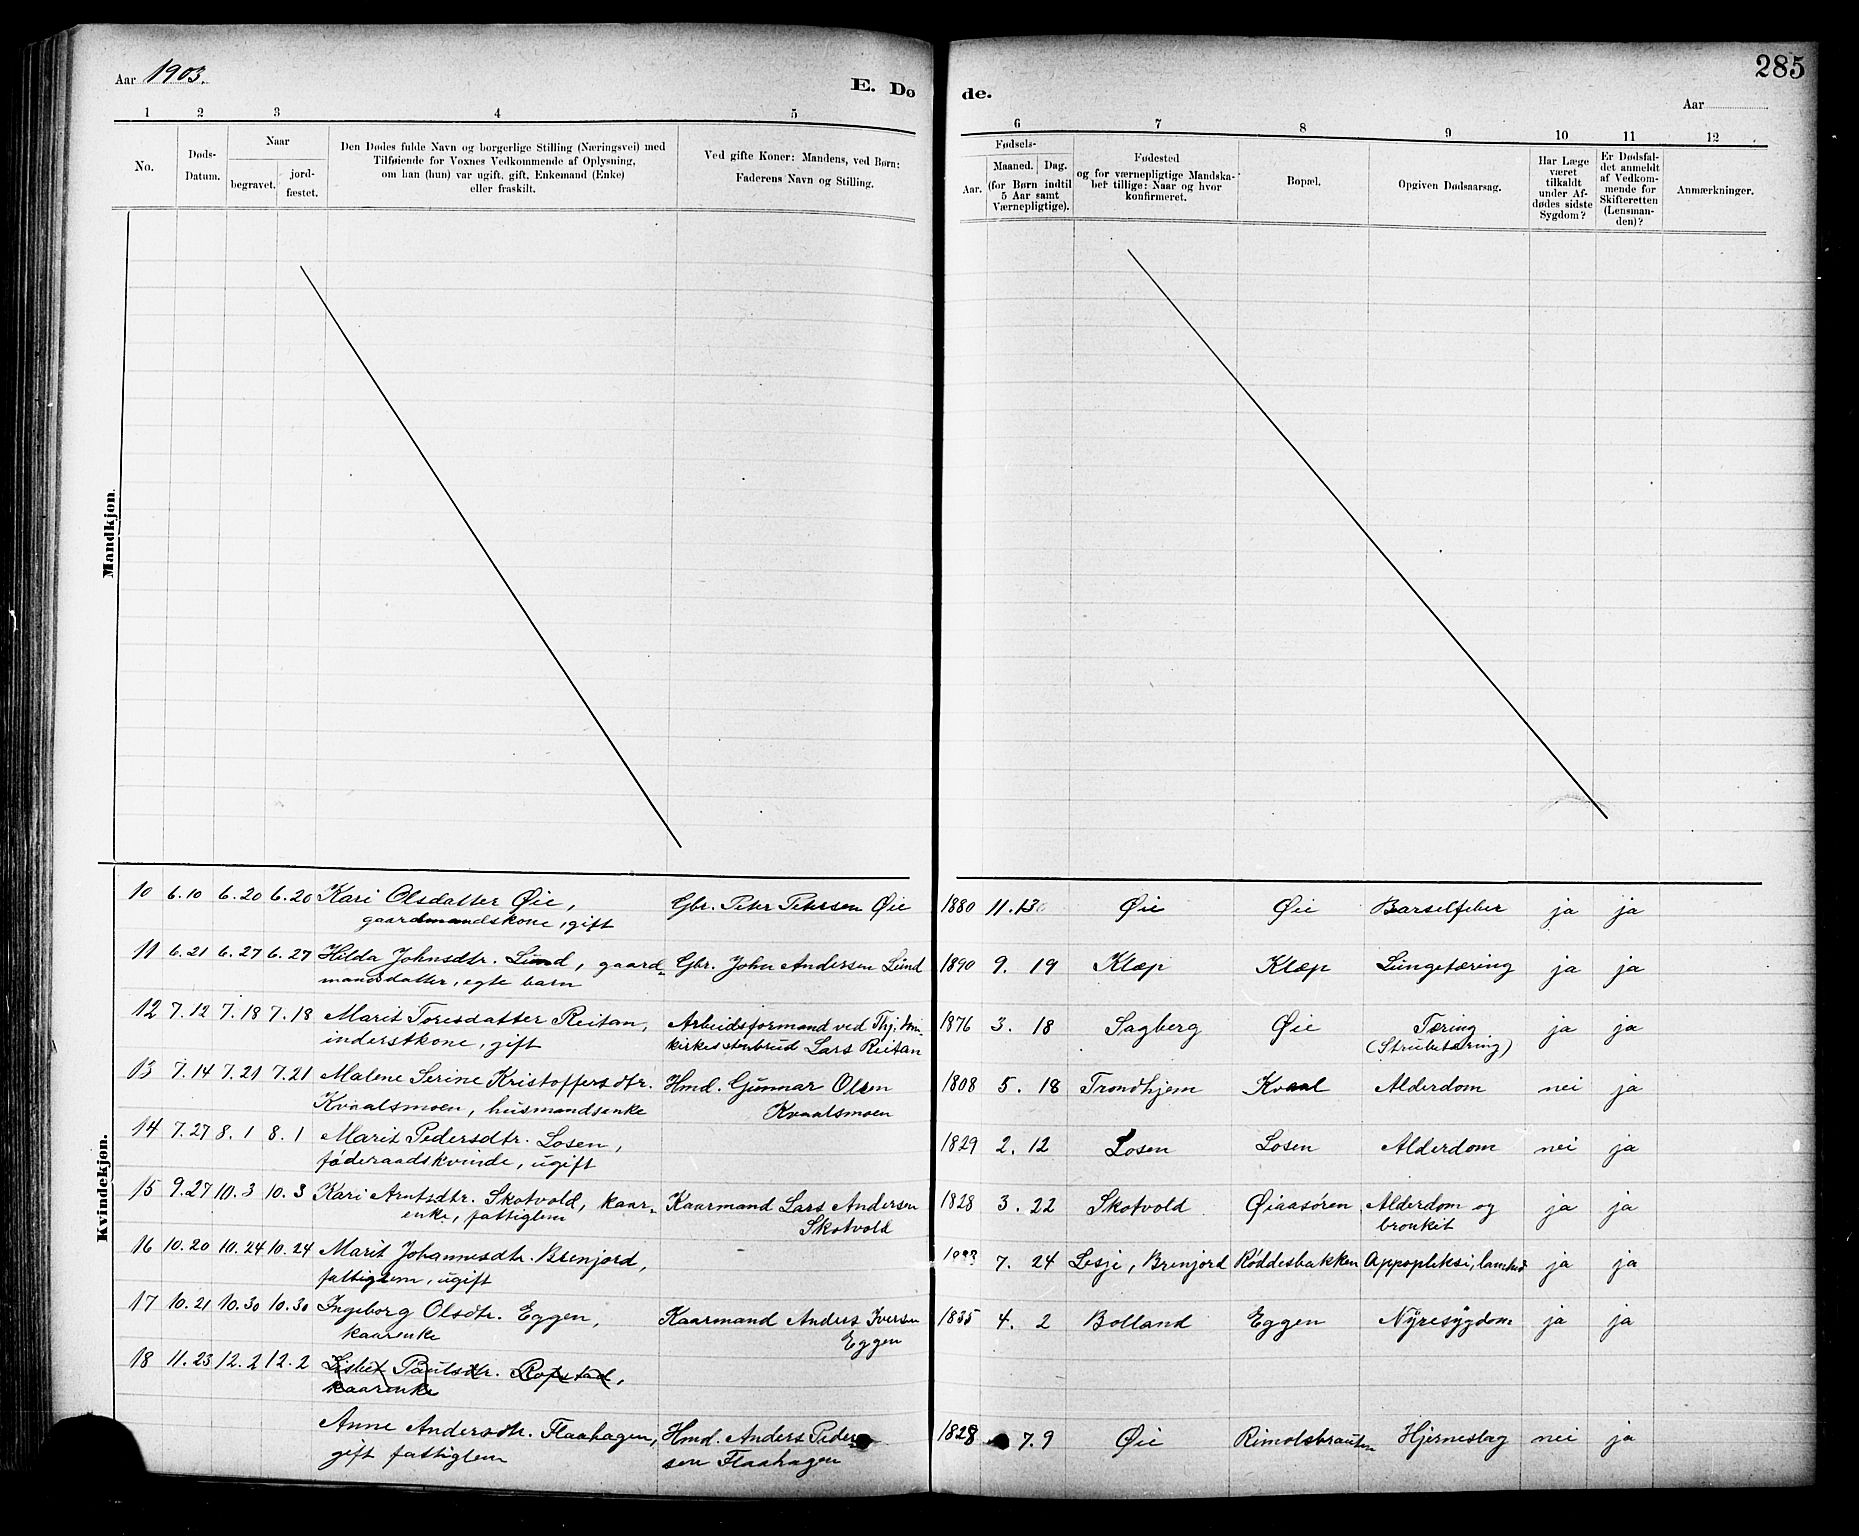 Aar 1903.
E. Do
de.
285
Aar
1 2 3 4 5
6 7 8 9 10 11 12
No.
Døds-
Datum.
Naar
begravet.
jord-
fæstet.
Den Dødes fulde Navn og borgerlige Stilling (Næringsvei) med
Tilføiende for Voxnes Vedkommende af Oplysning,
om han (hun) var ugift, gift, Enkemand (Enke)
eller fraskilt.
Ved gifte Koner: Mandens, ved Børn:
Faderens Navn og Stilling.
Fødsels-
Aar.
Maaned. Dag.
(for Børn indtil
5 Aar samt
Værnepligtige).
Fødested
og for værnepligtige Mandska-
bet tillige: Naar og hvor
konfirmeret.
Bopæl.
Opgiven Dødsaarsag.
Har Læge
været
tilkaldt
under Af-
dødes sidste
Sygdom?
Er Dødsfal-
det anmeldt
af Vedkom-
mende for
Skifteretten
(Lensman-
den)?
Anmærkninger.
Mandkjøn.
Kvindekjøn.
10 6.10 6.20 6.20 Kari Olsdatter Øie, Gbr. Peter Petersen Øie 1880 11.13 Øie Øie Barselfeber ja ja
gaardmandskone, gift
11 6.21 6.27 6.27 Hilda Johnsdtr. Lund, gaard- Gbr. John Andersen Lund 1890 9. 19 Klæp Klæp Lungetæring ja ja
mandsdatter, egte barn
12 7.12 7.18 7.18 Marit Toresdatter Reitan, Arbeidsformand ved Thj. 1876 3. 18 Sagberg Øie Tæring ja ja
inderstkone, gift kirkes stenbrud Lars Reitan (Strubetæring)
13 7.14 7.21 7.21 Malene Serine Kristoffersdtr. Hmd. Gunnar Olsen 1808 5. 18 Trondhjem Kvaal Alderdom nei ja
Kvaalsmoen, husmandsenke Kvaalsmoen
14 7.27 8.1 8.1 Marit Pedersdtr. Losen, 1829 2. 12 Losen Losen Alderdom nei ja
føderaadskvinde, ugift
15 9.27 10.3 10.3 Kari Arntsdtr. Skotvold, kaar- Kaarmand Lars Andersen 1828 3. 22 Skotvold Øiaasøren Alderdom og ja ja
enke, fattiglem Skotvold bronkit
16 10.20 10.24 10.24 Marit Johannesdtr. Brenjord, 7. 24 Lesje, Brenjord Røddesbakken Appopleksi, ja ja
fattiglem, ugift
17 10.21 10.30 10.30 Ingeborg Olsdtr. Eggen, Kaarmand Anders Iversen 1835 4. 2 Bolland Eggen Nyresygdom ja ja
kaarenke Eggen
18 11.23 12.2 12.2 Lisbet Paulsdtr. Ropstad,
kaarenke
Anne Andersdtr. Flaahagen, Hmd. Anders Peder- 1828 7.9 Øie Rimolsbrauten Hjerneslag nei ja
gift fattiglem sen Flaahagen